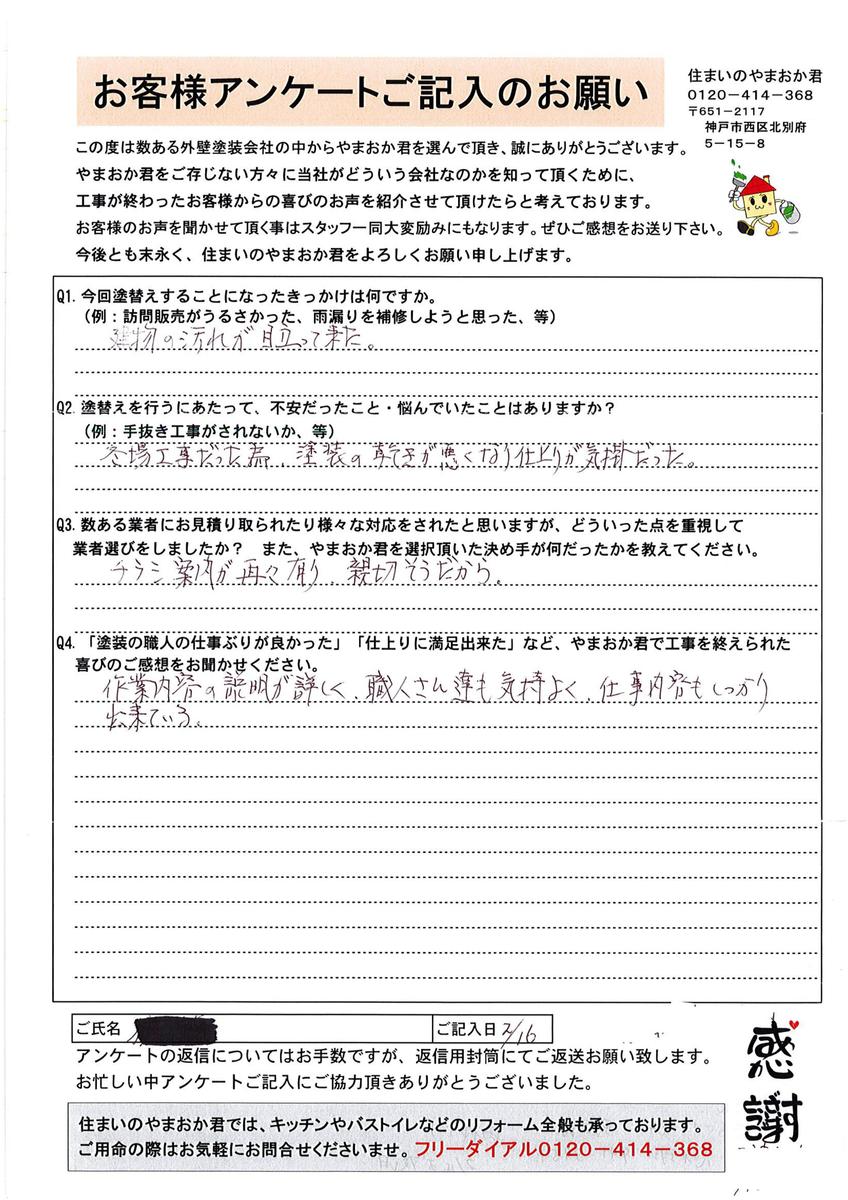 お客様アンケートご記入のお願い
住まいのやまおか君
0120－414－368
〒651－2117
神戸市西区北別府
5－15－8
この度は数ある外壁塗装会社の中からやまおか君を選んで頂き、誠にありがとうございます。
やまおか君をご存じない方々に当社がどういう会社なのかを知って頂くために、
工事が終わったお客様からの喜びのお声を紹介させて頂けたらと考えております。
お客様のお声を聞かせて頂く事はスタッフ一同大変励みにもなります。ぜひご感想をお送り下さい。
今後とも末永く、住まいのやまおか君をよろしくお願い申し上げます。
Q1. 今回塗替えすることになったきっかけは何ですか。
（例：訪問販売がうるさかった、雨漏りを補修しようと思った、等）
建物の汚れが目立って来た。
Q2. 塗替えを行うにあたって、不安だったこと・悩んでいたことはありますか？
（例：手抜き工事がされないか、等）
冬場工事だった為、塗装の乾きが悪くなり仕上りが気掛だった。
Q3. 数ある業者にお見積り取られたり様々な対応をされたと思いますが、どういった点を重視して
業者選びをしましたか？　また、やまおか君を選択頂いた決め手が何だったかを教えてください。
チラシ案内が再々有り、親切そうだから。
Q4. 「塗装の職人の仕事ぶりが良かった」「仕上りに満足出来た」など、やまおか君で工事を終えられた
喜びのご感想をお聞かせください。
作業内容の説明が詳しく、職人さん達も気持よく、仕事内容もしっかり
出来ている。
ご氏名
ご記入日 2/16
アンケートの返信についてはお手数ですが、返信用封筒にてご返送お願い致します。
お忙しい中アンケートご記入にご協力頂きありがとうございました。
感謝
住まいのやまおか君では、キッチンやバストイレなどのリフォーム全般も承っております。
ご用命の際はお気軽にお問合せくださいませ。フリーダイアル0120－414－368